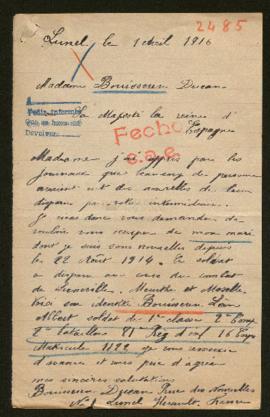 2485
Lunel le 1 Avril 1916
Madame Bouisseren Ducan
Sa Majesté la reine d'
Espagne
Fecho
Madame j'ai appris par les
journaux que beaucoup de personnes
avaient eut des nouvelles de leurs
disparu par votre intermédiaire.
Je viens donc vous demander de
vouloir vous occuper de mon mari
dont je suis sans nouvelles depuis
le 22 Août 1914. Ce soldat
a disparu au cours du combat
de Meurthe et Moselle
Voici son identité Bouisseren Léon
Albert soldat de 1re classe 2e Comp
2e bataillon 81 Reg d'inf 16 Corps
Matricule 1122 je vous remercie
d'avance et vous prie d'agréer
mes sincères salutations
Bouisseren Ducan Rue des
No 1 Lunel Herault France